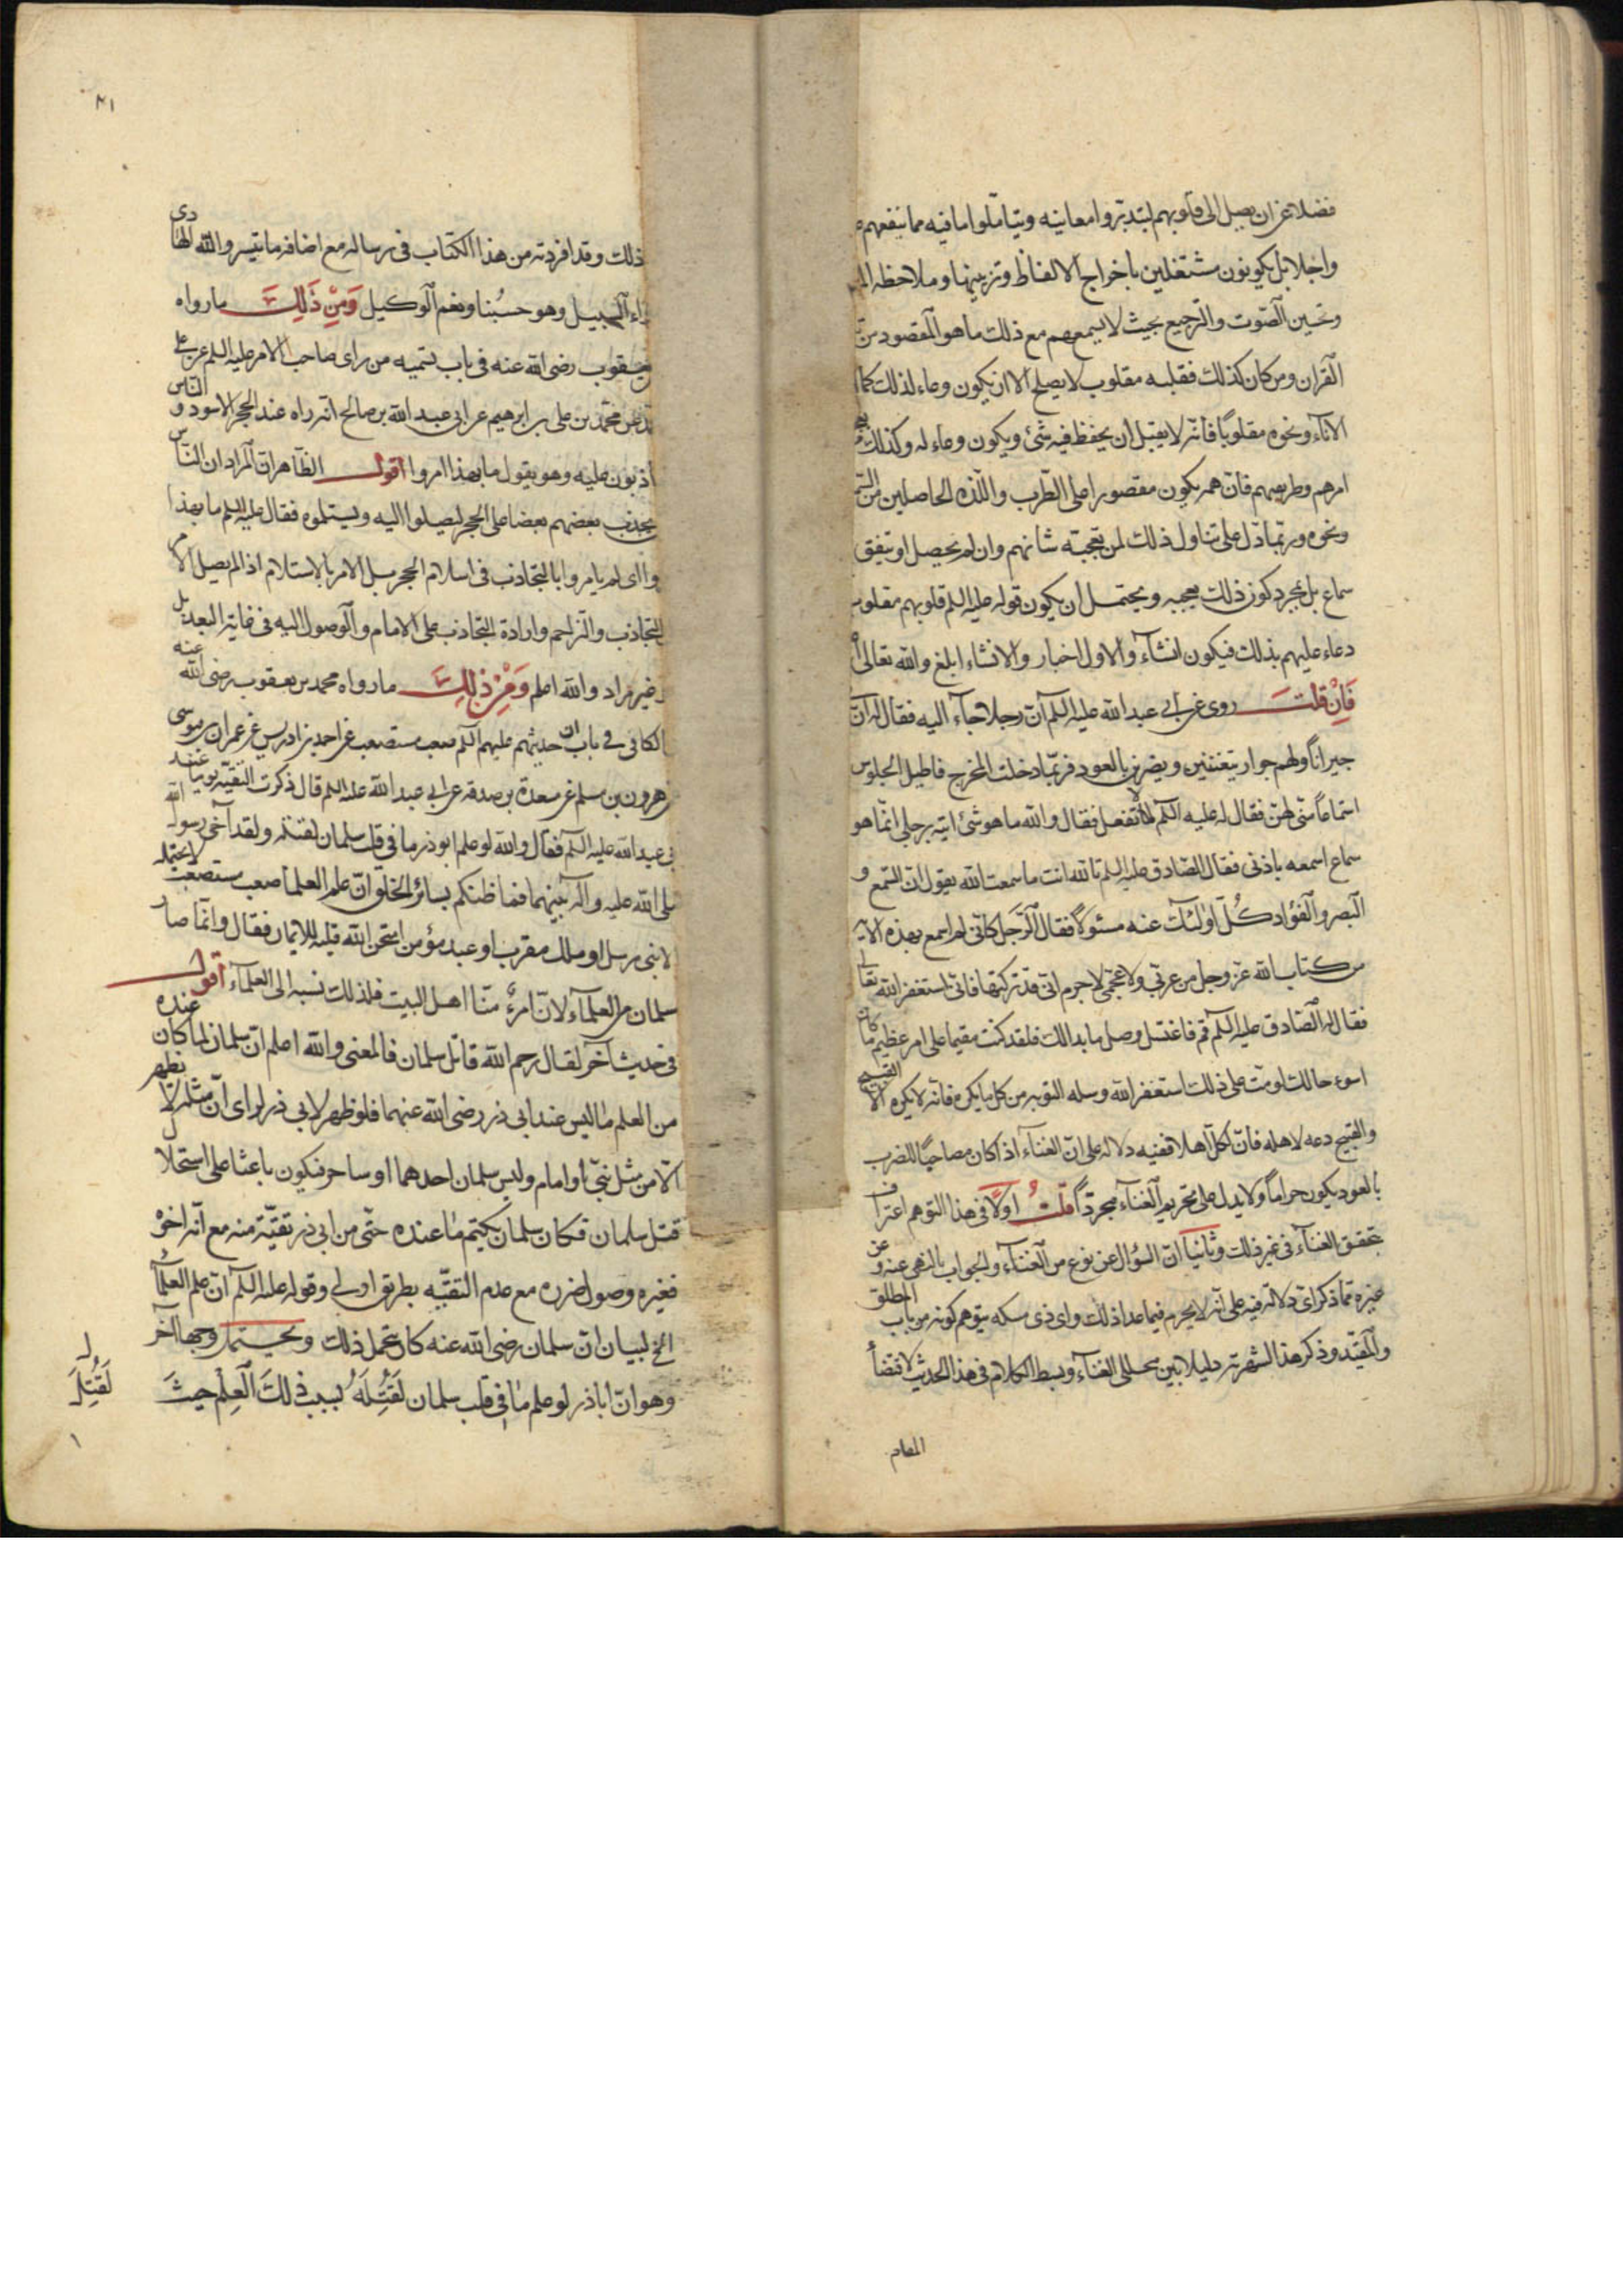 فضلا عن ان يصل الى قلوبهم ليتدبروا معانيه ويتاملوا ما فيه مما ينفعهم
واجلا بل يكونون مشتغلين باخراج الالفاظ وتزيينها وملاحظه
وتحسين الصوت والترجيع بحيث لا يسمعهم مع ذلك ما هو المقصود من
القران ومن كان كذلك فقلبه مقلوب لا يصلح الا ان يكون وعاء لذلك كما
الاناء ونحوه مقلوبًا فانّه لا يقبل ان يحفظ فيه شئ ويكون وعاء له وكذلك
امرهم وطريقهم فانّ همهم يكون مقصورا على الطرب واللّذه الحاصلين من
ونحوه وربّما دلّ على تناول ذلك لمن يعجبه شانهم وان لم يحصل او يتفق
سماع بل بمجرد كون ذلك يعجبه ويحتمل ان يكون قوله عليه السلم قلوبهم مقلوبه
دعاء عليهم بذلك فيكون انشآء والاول اخبار والانشاء ابلغ والله تعالى
فَاِنْ قلتَ روى عن ابى عبد الله عليه السلم انّ رجلا جآء اليه فقال له انّ
جيرانًا ولهم جوار يتغنين ويضربن بالعود فربّما دخلت المخرج فاطيل الجلوس
استماعًا منّى لهنّ فقال له عليه السلم لا تفعل فقال والله ما هو شئ اتيه برجلى انّما هو
سماع اسمعه باذنى فقال الصّادق عليه السلم تالله انت ما سمعت الله يقول انّ السّمع و
البصر والفؤاد كُلّ اولئك عنه مسئولا فقال الرّجل كانّى لم اسمع بهذه الايه
من كتاب الله عزّ وجل من عربّى ولا عجمّى لا جرم انّى قد تركتها فانى استغفر الله تعالى
فقال له الصّادق عليه السلم قم فاغتسل وصل ما بدا لك فلقد كنت مقيما على امر عظيم ما كان
اسوء حالك لو متّ على ذلك استغفر الله وسله التوبه من كل ما يكره فانّه لا يكره الّا القبيح
والقبيح دعه لاهله فانّ لكلّ اهلا ففيه دلاله على انّ الغنآء اذا كان مصاحبًا للضرب
بالعود يكون حرامًا ولا يدل على تحريم الغنآء مجردًا قلتُ اولًا فى هذا التوهم اعتراف
بتحقق الغنآء فى غير ذلك وثانيًا انّ السؤال عن نوع من الغنآء والجواب بالنهى عنه وعن
غيره تماذكر اى دلاله فيه على انّه لا يحرم فيما عدا ذلك واى ذى مسكه يتوهم كونه من باب المطلق
والمقيّد وذكر هذا لشهرته دليلا بين محللى الغنآء وبسط الكلام فى هذا الحديث لا قتضاء
المقام
٤١
ذلك وقد افردته من هذا الكتاب فى رساله مع اضافه ما تيسر والله الهادى
السبيل وهو حسبُنا ونعم الوكيل وَمِنْ ذَلِكَ ما رواه
يعقوب رضى الله عنه فى باب تسميه من راى صاحب الامر عليه السلم عن على
محمّد بن على بن ابرهيم عن ابى عبد الله بن صالح انّه راه عند الحجر الاسود والناس
يتجاذبون عليه وهو يقول ما بهذا امروا اقول الظّاهر انّ المراد ان النّاس
يجذب بعضهم بعضا على الحجر ليصلوا اليه ويستلموه فقال عليه السلم ما بهذا
امروا اى لم يامروا بالتجاذب فى استلام الحجر بل الامر بالاستلام اذا لم يصل الامر
التجاذب والتزاحم وارادة التجاذب على الامام والوصول اليه فى غاية البعد بل
غير مراد والله اعلم وَمِنْ ذلِكَ ما رواه محمد بن يعقوب رضى الله عنه
الكافى فى باب ان حديثهم عليهم السلم صعب مستصعب عن احمد بن ادريس عن عمران بن موسى
هرون بن مسلم عن مسعدة بن صدقه عن ابى عبد الله عليه السلم قال ذكرت التقيّه يومًا عند
ابى عبد الله عليه السلم فقال والله لو علم ابو ذر ما فى قلب سلمان لقتله ولقد آخى رسول الله
صلى الله عليه واله بينهما فما ظنكم بسائر الخلق انّ علم العلما صعب مستصعب لا يحتمله
الا نبى مرسل او ملك مقرب او عبد مؤمن امتحن الله قلبه للايمان فقال وانّما صار
سلمان من العلمآء لانّه امرءٌ منّا اهل البيت فلذلك نسبه الى العلمآء اقول
فى حديث آخر لقال رحم الله قاتل سلمان فالمعنى والله اعلم انّ سلمان لما كان عنده
من العلم ما ليس عند ابى ذر رضى الله عنهما فلو ظهر لابى ذر لراى انّ مثله لا يظهر
الّا من مثل نبىّ او امام وليس سلمان احدهما او ساحر فيكون باعثا على استحلال
قتل سلمان فكان سلمان يكتم ما عنده حتّى من ابى ذر تقيّة منه مع انّه اخوه
فغيره وصول لضرره مع عدم التقيّه بطريق اولى وقوله عليه السلم انّ علم العلمآء
الخ لبيان انّ سلمان رضى الله عنه كان يحتمل ذلك ويحتمل وجها آخر
وهو انّ اباذر لو علم ما فى قلب سلمان لَقَتَلَهُ بسبب ذلكَ العِلم حيثَ
لَقُتِلَ